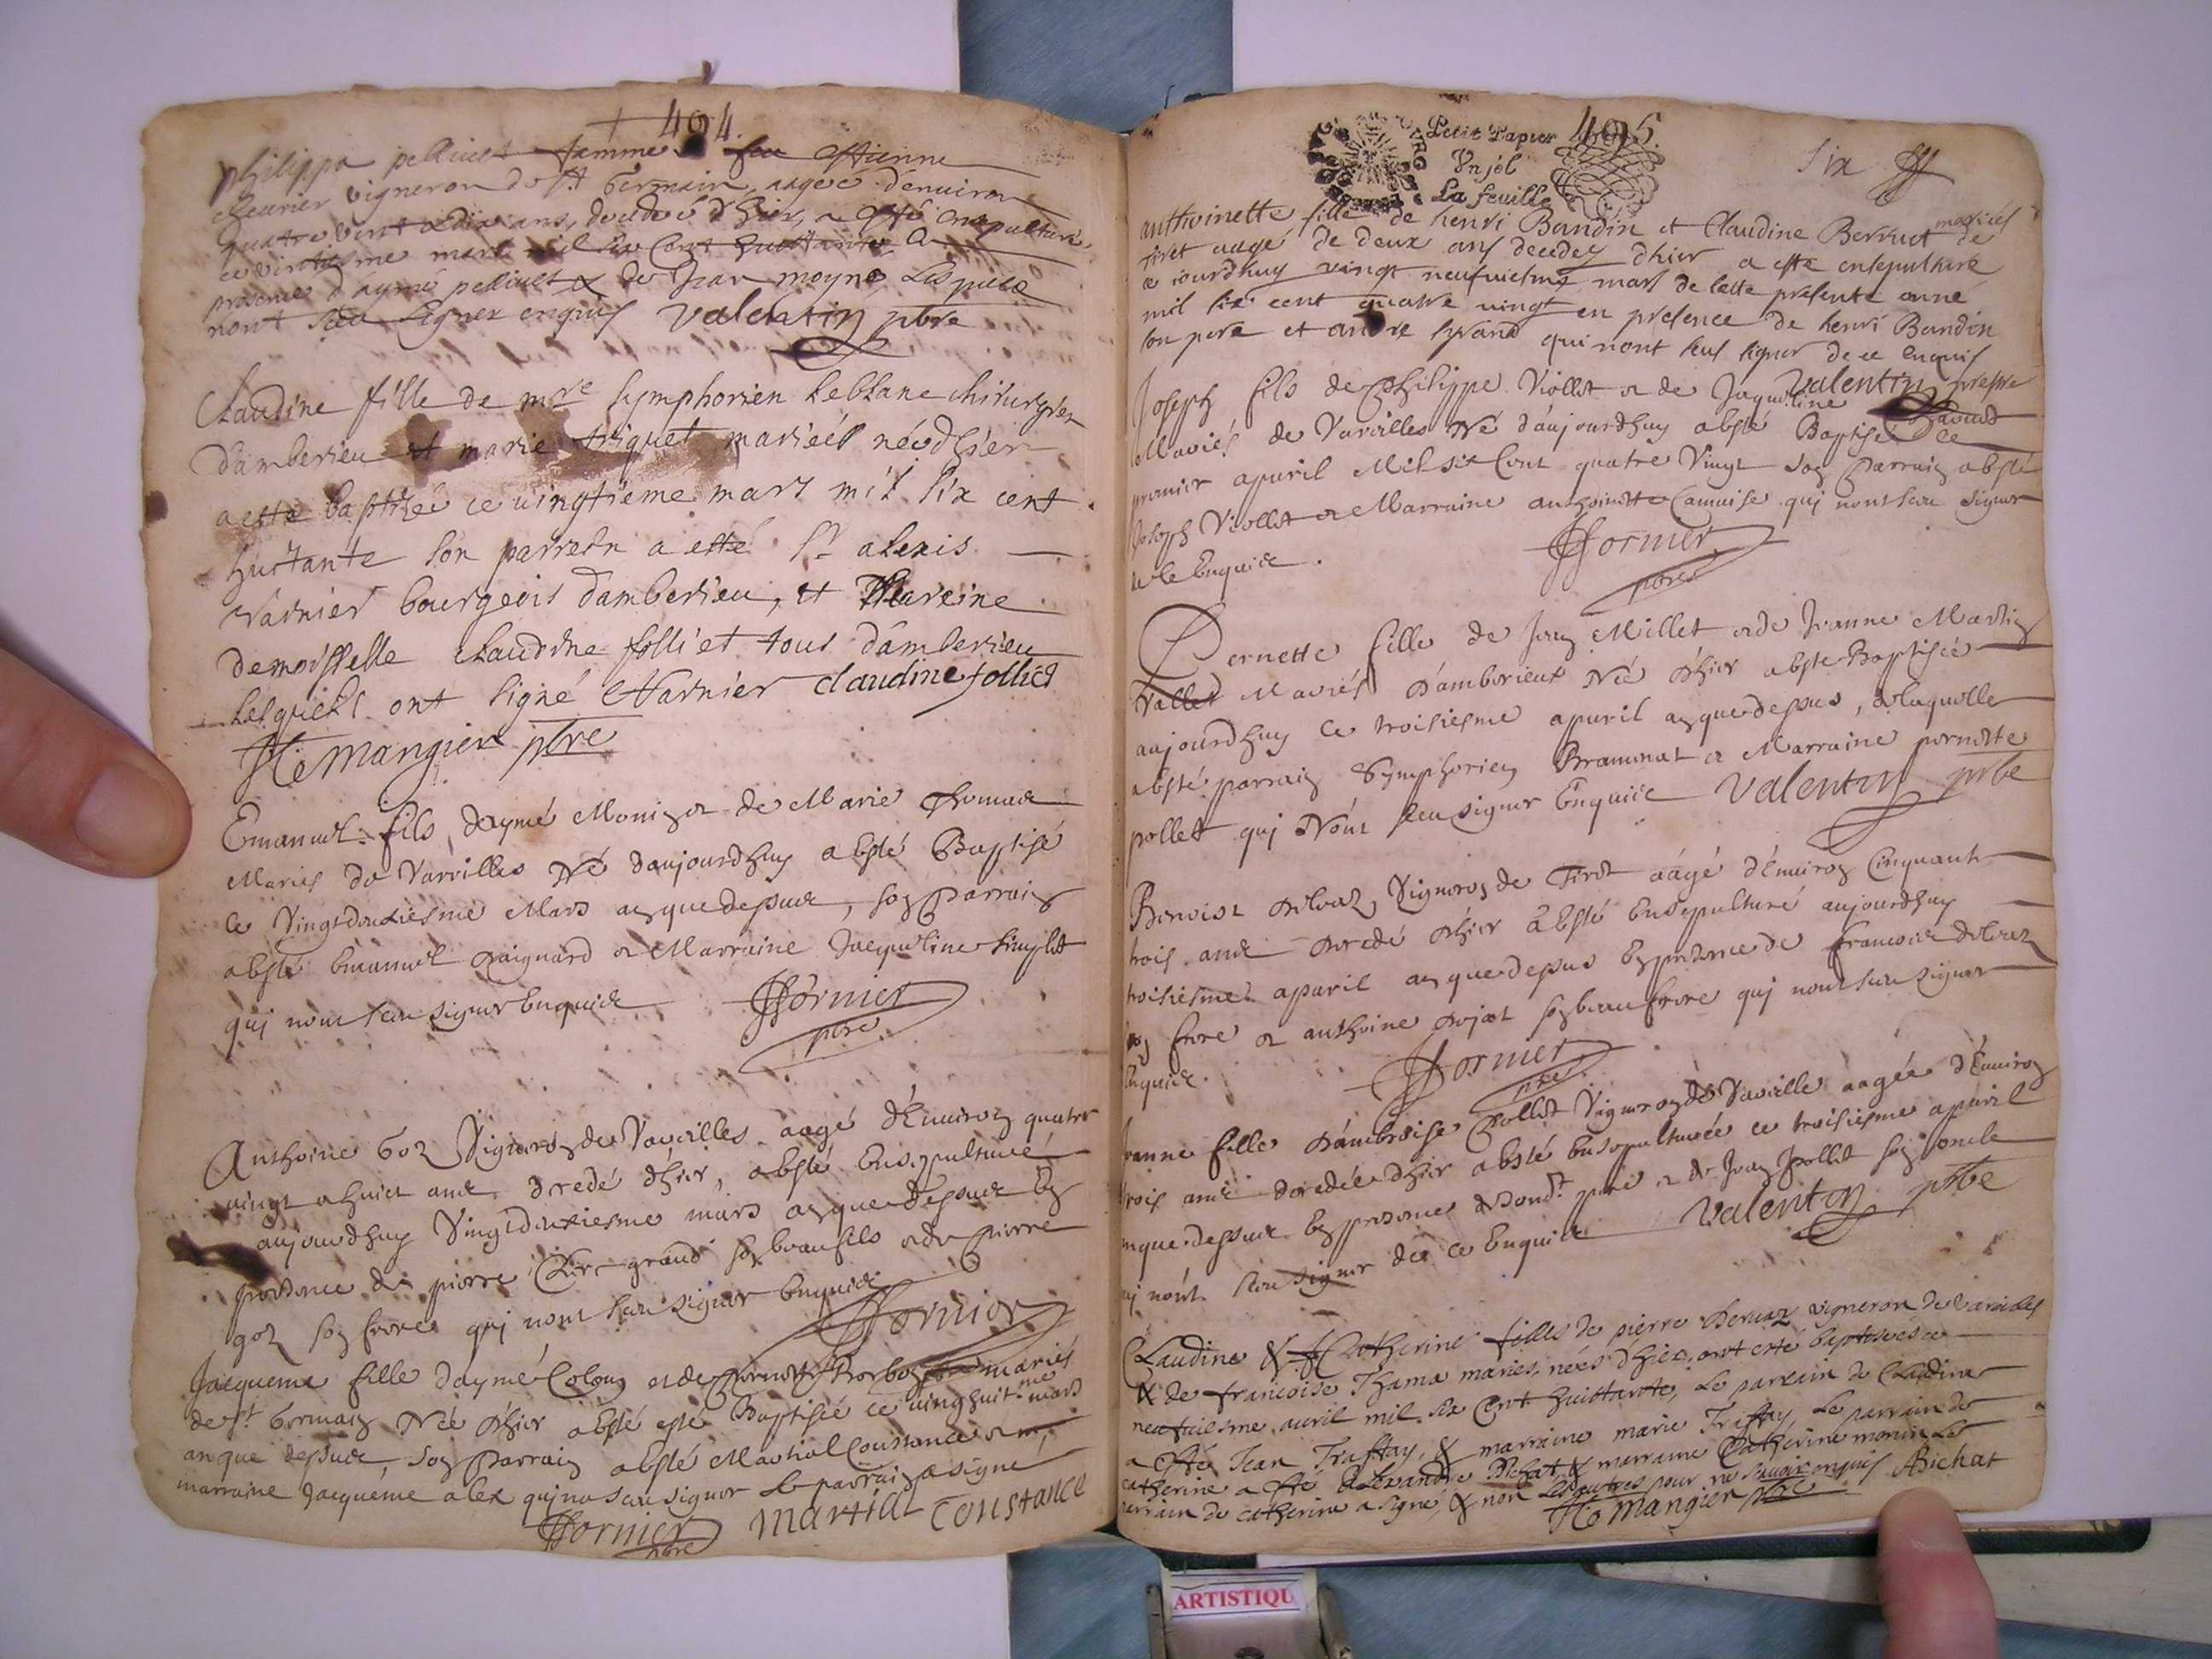 404.
philippa pelliuet femme feu estienne
cheurier vigneron de St Germain, aagée d'enuiron
quatre vint et dix ans, decedeé d'hier, a esté ensepulturé
ce vintiesme mars mil six cent huictante a
presence d'aymé pelliuet & de Jean moyne Lesquels
nont sceu signer enquis Valentin pbre
Claudine fille de mre symphorien leblanc chirurgien
damberieu et marie triquet marieés néé dhier
a esté baptizeé ce uingtieme mars mil six cent
huictante son parrein a esté sr alexis
Varnier bourgeois damberieu, et Mareine
demoisselle claudine folliet tous damberieu
lesquiels ont signé AVarnier claudine folliet
Mangier pbre
Emanuel fils daymé Monin & de Marie
Mariés de Vareilles Né daujourdhuy a esté Baptisé
le Vingtdeuxiesme Mars an que dessus, son Parrain
a esté Emanuel & Marraine Jacqueline
qui nont sceu signer Enquis Fornier
pbre
Anthoine Goz Vigneron de Vareilles aagé d'Enuiron quatre
uingt & huict ans decedé d'hier, a esté Ensepulturé
aujourdhuy Vingtdeuxiesme mars an que dessus En
presence de pierre Clerc grand son beaufils & de pierre
goz son frere qui nont sceu signer Enquis
Fornier
Jacqueme fille daymé Colomb et de mariés
de St Germain Née d'hier a esté esté Baptisée ce uinghuit.me mars
an que dessus, son Parrain a esté Martial Coustance &
marraine Jacqueme alex qui na sceu signer le parrain a signe
Fornier pbre martial constance
Petit Papier 405.
Vn sol
La feuille
six
anthoinette fille de henri Bandin et Claudine Berruet mariés de
tiret aagé de deux ans decedeé dhier a esté ensepulturé
ce iourdhuy vingt neufuiesme mars de cette presente anné
mil six cent quatre uingt en presence de henri Bandin
son pere et andre qui nont seus signer de ce enquis
Valentin prestre
Joseph fils de Philippe Viollet & de Jaqueline
Mariés de Vareilles Né d'aujourdhuy a esté Baptisé ce
premier apuril Mil six Cent quatre Vingt son Parrain a esté
Joseph Viollet & Marraine anthoinette qui nont sceu signer
de ce Enquis.
Fornier
pbre
Pernette fille de Jean Millet & de Jeanne Martin
Vallet Mariés d'amberieux Née d'hier a esté Baptisée
aujourdhuy ce troisiesme apuril an que dessus, de laquelle
a esté parrain Symphorien Brammat & Marraine pernette
pollet qui N'ont sceu signer Enquis Valentin pbre
Benoist Vigneron de Tiret aagé d'Enuiron Cinquante
trois ans decedé d'hier a esté Ensepulturé aujourdhuy
troisiesme apuril an que dessus En presence de francois
son frere & anthoine son beaufrere qui nont sceu signer
Enquis.
Fornier
pbre
Jeanne fille d'ambroise Pollet Vigneron de Vareille aagée d'Enuiron
trois ans decedée d'hier a esté Ensepulturée ce troisiesme apuril
an que dessus En presence dudt pere & de Jean Pollet son oncle
qui nont sceu signer de ce Enquis Valentin pbre
Claudine & Catherine filles de pierre vigneron de Vareilles
& de francoise Thama mariés, nées d'hier, ont esté baptiséés ce
neufuiesme auril mil six Cent huictante, Le parrain de Claudine
a esté Jean Traffay, & marraine marie Traffay, Le parrain de
catherine a esté Alexandre Bichat & marraine Catherine monin Le
parrain de catherine a signé, & non Les autres pour ne sauoir enquis ABichat
Mangier pbre
ARTISTIQU